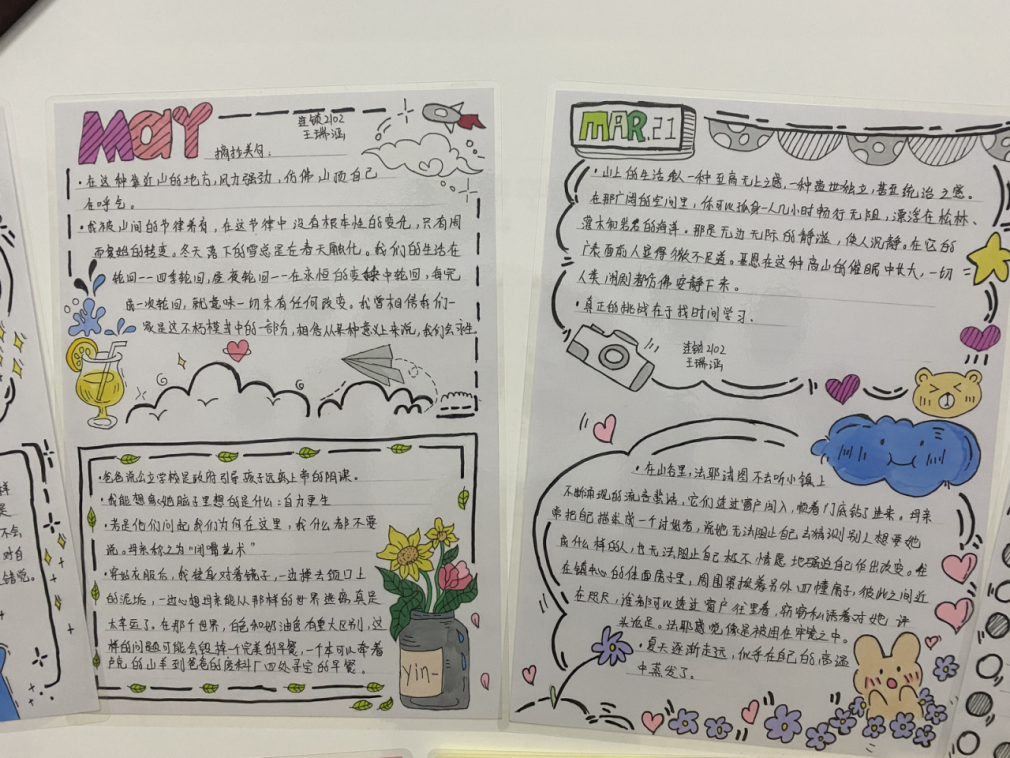 MAY
连锁2102
王琳涵
摘抄美句:
·在这种靠近山的地方,风力强劲,仿佛山顶自己
在呼气。
·我被山间的节律养育,在这节律中没有根本性的变化,只有周
而复始的转变。
冬天落下的雪总是在春天融化。我们的生活在
轮回——四季轮回,昼夜轮回——在永恒的变换中轮回,每完
成一次轮回,就意味一切未有任何改变。我曾相信我们一
家是这不朽模式中的一部分,相信从某种意义上来说,我们会永生
·爸爸说公立学校是政府引导孩子远离上帝的阴谋。
·我能想象她脑子里想的是什么:自力更生
·若是他们问起我们为何在这里,我什么都不要
说。母亲称之为“闭嘴艺术”
·穿好衣服后,我独自对着镜子,一边擦去领口上
的泥垢,一边心想母亲能从那样的世界逃离真是
太幸运了。在那个世界,白色和奶油色有重大区别,这
样的问题可能会毁掉一个完美的早餐,一个本可以牵着
卢克的山羊到爸爸的废料厂四处寻宝的早餐。
Yin-
MAR.21
·山上的生活给人一种至高无上之感,一种遗世独立,甚至统治之感。
在那广阔的空间里,你可以独身一人几小时畅行无阻,漂浮在松林、
灌木和岩石的海洋。那是无边无际的静谧,使人沉静。在它的
广袤面前人显得微不足道。基恩在这种高山的催眠中长大,一切
人类闹剧都仿佛安静下来。
·真正的挑战在于找时间学习.
连锁2102
王琳涵
·在山谷里,法耶试图不去听小镇上
不断涌现的流言蜚语,它们透过窗户闯入,顺着门底钻了进来。母亲
常把自己描述成一个讨好者,说她无法阻止自己去猜测别人想要她
成什么样的人,也无法阻止自己极不情愿地强迫自己作出改变。住
在镇中心的体面房子里,周围紧挨着另外四幢房子,彼此之间近
在咫尺,谁都可以透过窗户往里看,窃窃私语着对她评
头论足。法耶感觉像是被困在牢笼之中。
·夏天逐渐走远,似乎在自己的高温
中蒸发了。